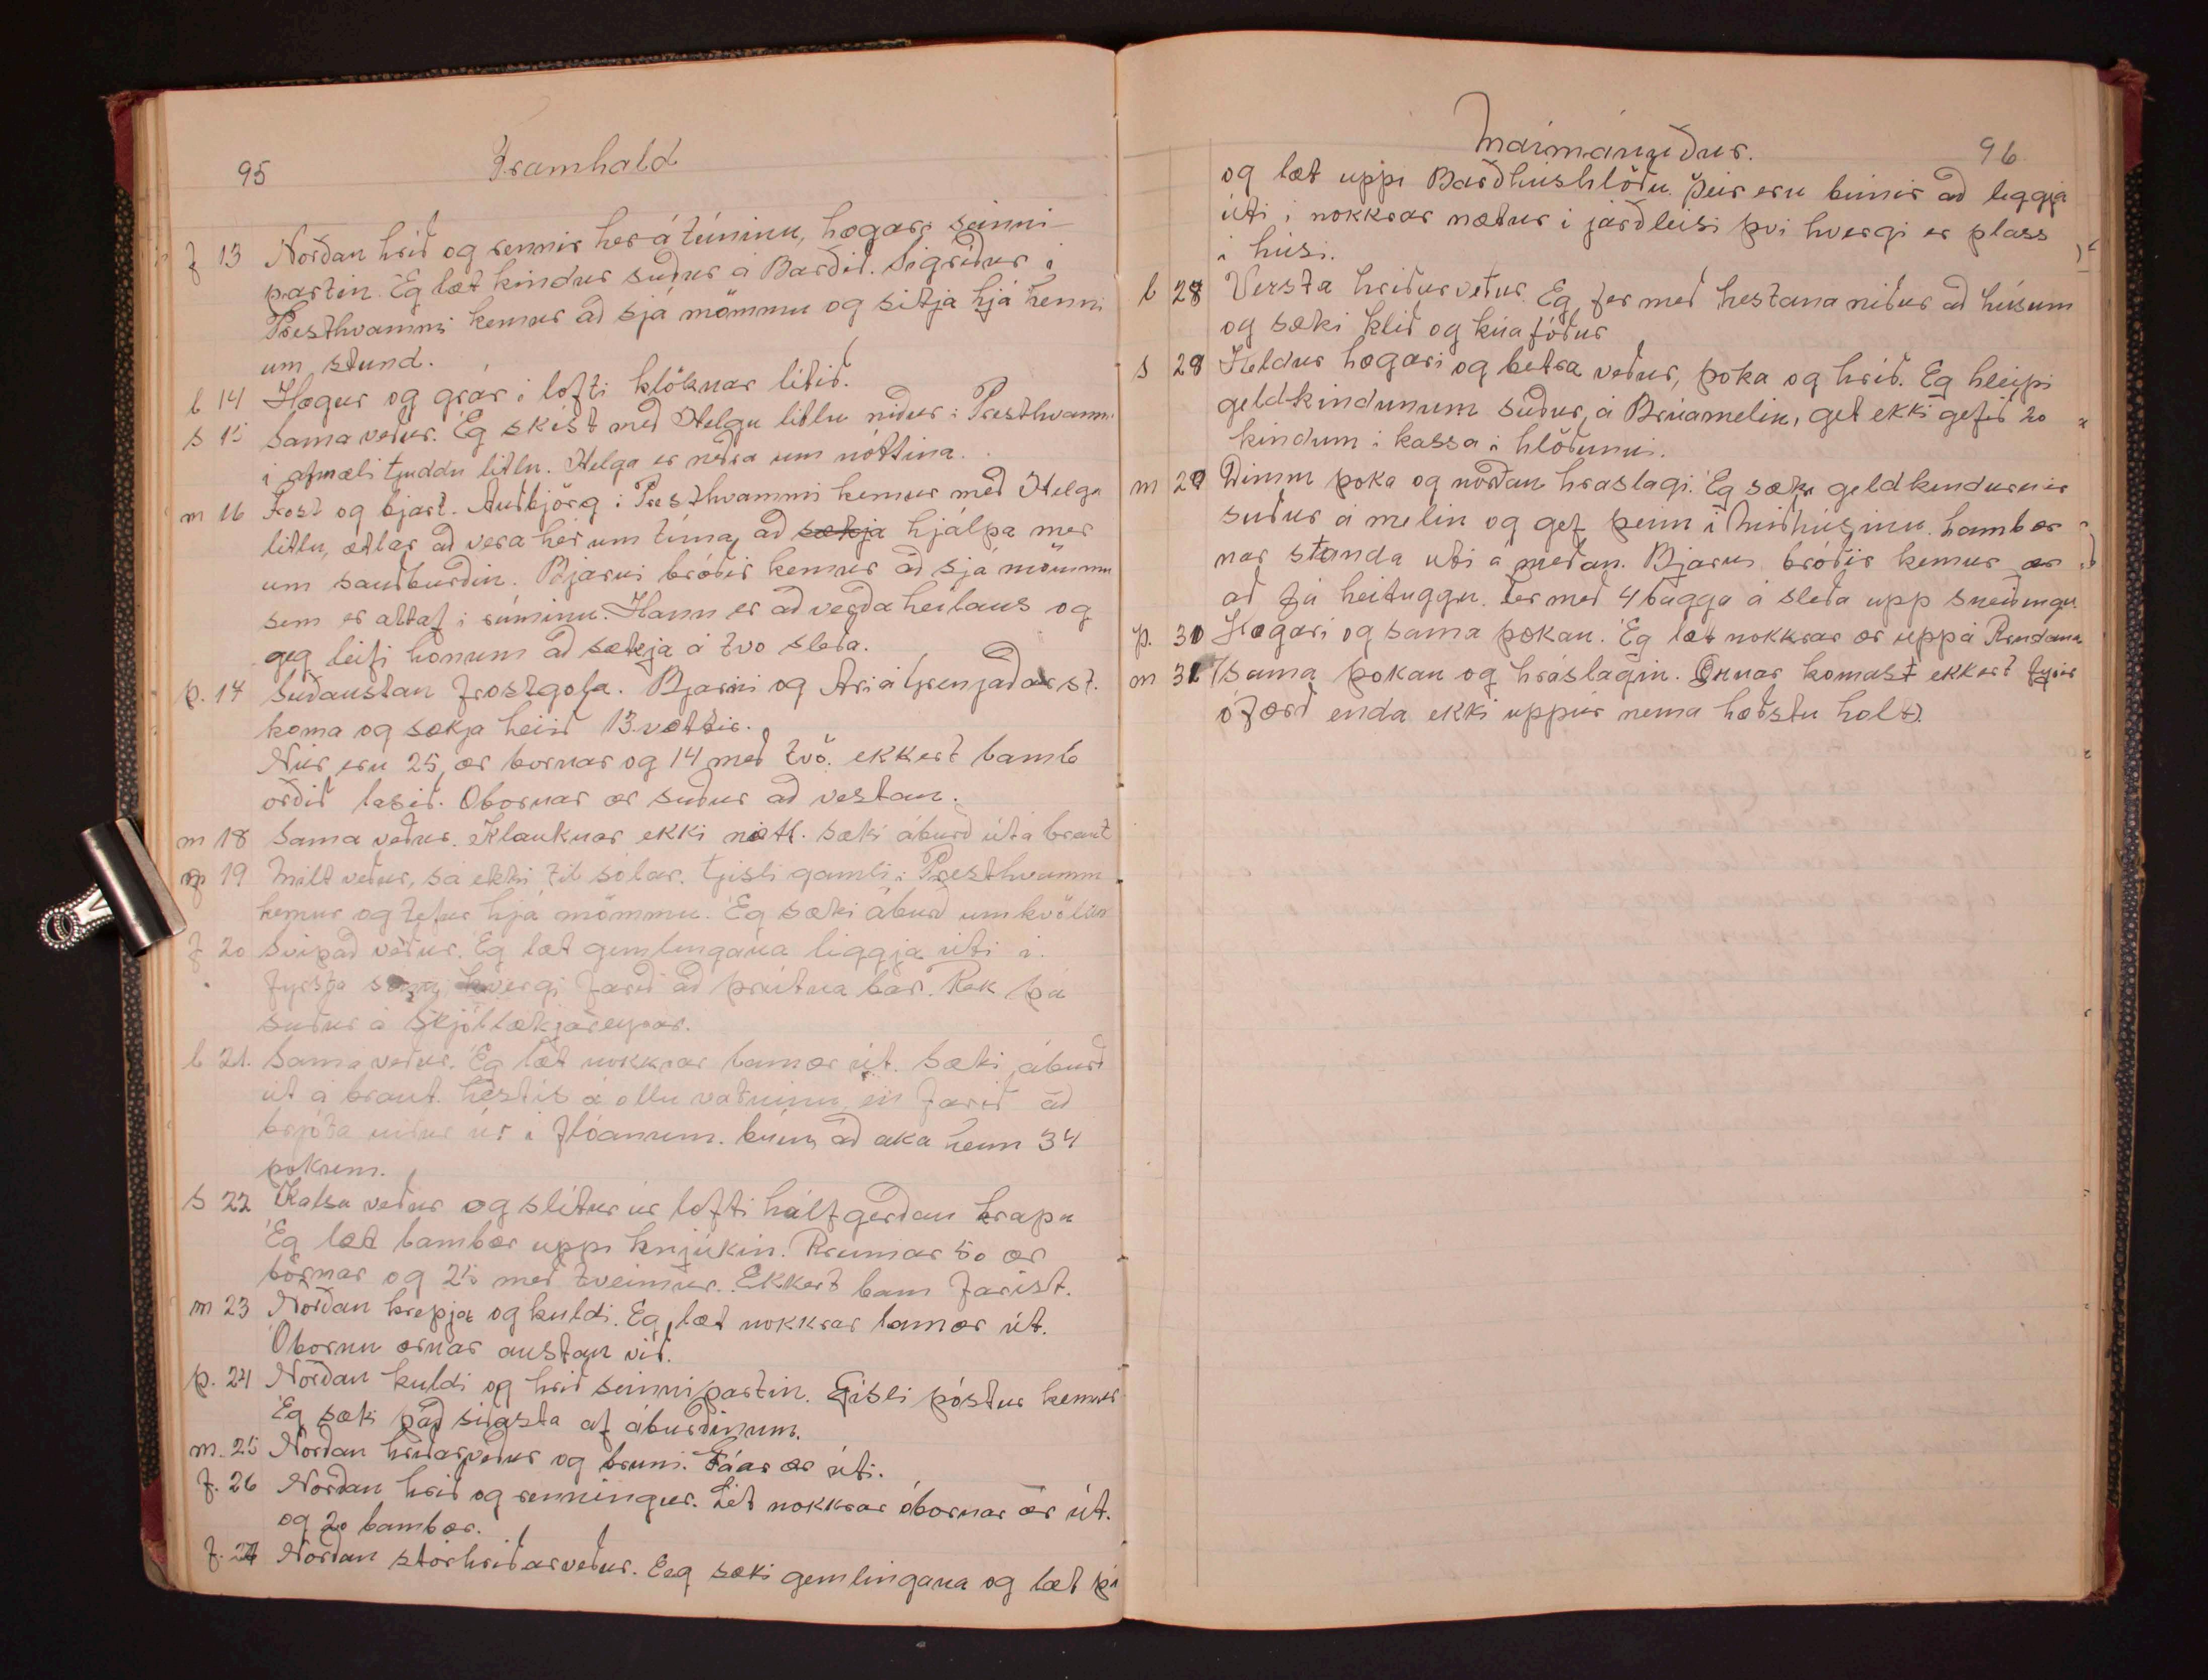 95
Framhald
f 13 Norðan hrið og rennir her á túninu, hægari seinni-
partin. Eg læt kindur suður á Barðið. Sigriður i
Presthvammi kemur að sjá mömmu og sitja hjá henni
um stund.
l 14 Hægur og grár i lofti klöknar litið.
s 15 Sama veður. Eg skist með Helgu litlu niður i Presthvamm
i afmæli Guddu litlu. Helga er neðra um nóttina.
m 16 Frost og bjart. Auðbjörg i Presthvammi kemur með Helgu
litlu, ætlar að vera hér um tíma, að sækja hjálpa mer
um sauðburðin. Bjarni bróðir kemur að sjá mömmu
sem er altaf i rúminu. Hann er að verða heilaus og
geg leifi honum að sækja á tvo sleða.
þ. 17 Suðaustan frostgola. Bjarni og Ari á Grenjaðarst.
koma og sækja heiið 13 vættir.
Nú eru 25 ær bornar og 14 með tvö. ekkert lamb
orðið lasið. Obornar ær suður að vestan.
m 18 Sama veður. Klauknar ekki nætt. Sæki áburð útá braut
þ 19 Milt veður, sá ekki til sólar. Gisli gamli i Presthvamm
kemur og tefur hjá mömmu. Eg sæki áburð um kvöldið
f 20 Svipað veður. Eg læt gemlingana liggja úti i
fyrsta sinn, hvergi farið að þrútna bar. Rek þá
suður á Skjöllækjareyrar.
l 21. Sama veður. Eg læt nokkrar lamær út. Sæki áburð
út á braut. hestis á ollu vatninu, en farið að
brjóta niður úr i flóanum. búin að aka henn 34
pokum.
s 22 Kalsa veður og slitur úr lofti hálfgerðan krapa
Eg læt lambær uppi hnjúkin. Rumar 50 ær
bornar og 25 með tveimur. Ekkert lam farist.
m 23 Norðan krepja og kuldi. Eg læt nokkrar lamær út.
Obornu ærnar austan við.
þ. 24 Norðan kuldi og hrið seinnipartin. Gisli póstur kemur
Eg sæki það siðasta af áburðinum.
m. 25 Norðan hriðarveður og bruni. Fáar ær úti.
f. 26 Norðan hrið og renningur. Lét nokkrar óbornar ær út.
og 20 lambær.
f. 27 Norðan stórhriðarveður. Eeg sæki gemlingana og læt þá
Maímánuður.
96
og læt uppi Barðhúshlöðu. Þeir eru búnir að liggja
úti i nokkrar nætur i jarðleisi þvi hvergi er plass
i húsi.
l 28 Versta hriðurveður. Eg fer með hestana niður að húsum
og sæki klið og kúafóður
s 29 Heldur hægari og betra veður, þoka og hrið. Eg hleipi
geldkindunum suður, á Brúamelin, get ekki gefið 20
kindum i kassa i hlöðunni.
m 29 Dimm þoka og norðan hraslagi. Eg sæki geldkindurnir
suður á melin og gef þeim i Miðhúsinu. Lambær
nar standa uti á meðan. Bjarni bróðir kemur ær
að fá heituggu. fer með 4 bagga á sleða upp sneiðingu
þ. 30 Hægari og sama þokan. Eg læt nokkrar ær uppá Rindana
m 31 Sama þokan og hráslagin. Ærnar komast ekkert fyrir
ófærð enda ekki uppúr nema hæðstu holt.